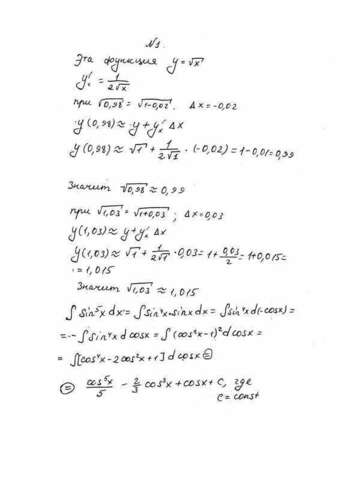 №1.
Эта функция y = √x
y'ₓ = 1/(2√x)
при √0,98 = √(1-0,02). Δx = -0,02
y(0,98) ≈ y + y'ₓ Δx
y(0,98) ≈ √1 + 1/(2√1) · (-0,02) = 1 - 0,01 = 0,99
Значит √0,98 ≈ 0,99
при √1,03 = √(1+0,03); Δx = 0,03
y(1,03) ≈ y + y'ₓ Δx
y(1,03) ≈ √1 + 1/(2√1) · 0,03 = 1 + 0,03/2 = 1 + 0,015 =
= 1,015
Значит √1,03 ≈ 1,015
∫ sin⁵x dx = ∫ sin⁴x · sinx dx = ∫ sin⁴x d(-cosx) =
= - ∫ sin⁴x d cosx = ∫ (cos²x - 1)² d cosx =
= ∫ [cos⁴x - 2cos²x + 1] d cosx ⊜
⊜ cos⁵x/5 - 2/3 cos³x + cosx + C, где
C = const